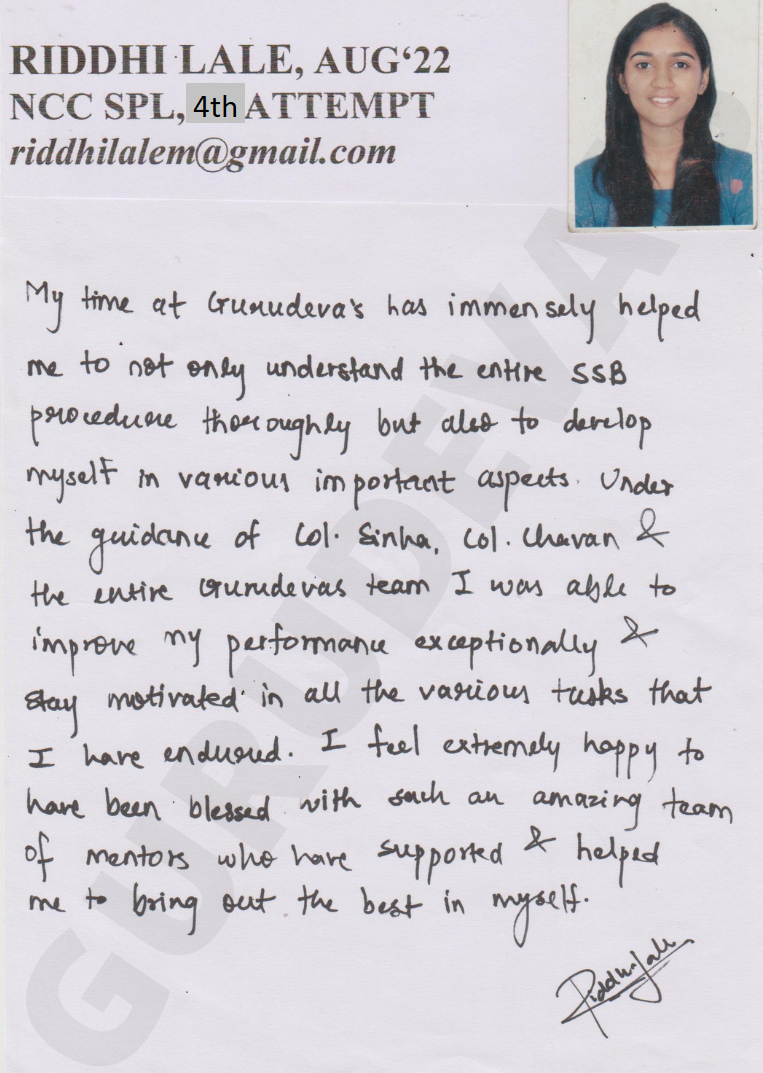 RIDDHI LALE, AUG‘22
NCC SPL, 4th ATTEMPT
riddhilalem@gmail.com
My time at Gurudeva's has immensely helped
me to not only understand the entire SSB
procedure thoroughly but also to develop
myself in various important aspects. Under
the guidance of Col. Sinha, Col. Chavan &
the entire Gurudevas team I was able to
improve my performance exceptionally &
stay motivated in all the various tasks that
I have endured. I feel extremely happy to
have been blessed with such an amazing team
of mentors who have supported & helped
me to bring out the best in myself.
Riddhi Lale
GURUDEVAS